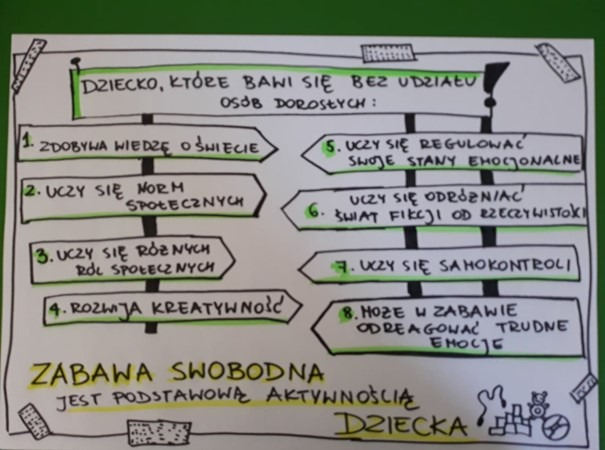 DZIECKO, KTÓRE BAWI SIĘ BEZ UDZIAŁU
OSÓB DOROSŁYCH:
1. ZDOBYWA WIEDZĘ O ŚWIECIE
2. UCZY SIĘ NORM
SPOŁECZNYCH
3. UCZY SIĘ RÓŻNYCH
RÓL SPOŁECZNYCH
4. ROZWIJA KREATYWNOŚĆ
5. UCZY SIĘ REGULOWAĆ
SWOJE STANY EMOCJONALNE
6. UCZY SIĘ ODRÓŻNIAĆ
ŚWIAT FIKCJI OD RZECZYWISTOŚCI
7. UCZY SIĘ SAMOKONTROLI
8. MOŻE W ZABAWIE
ODREAGOWAĆ TRUDNE
EMOCJE
ZABAWA SWOBODNA
JEST PODSTAWOWĄ AKTYWNOŚCIĄ
DZIECKA